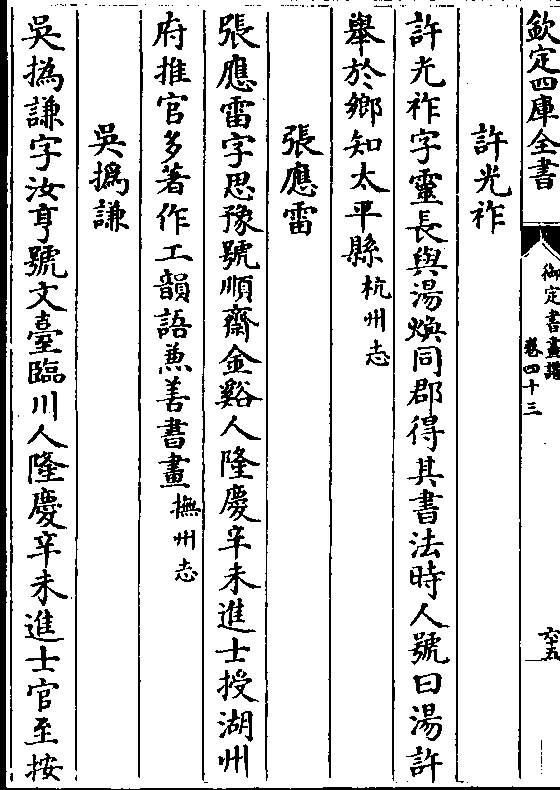 欽定四庫全書
御定書畫譜
卷四十三
六十五
許光祚
許光祚字靈長與湯煥同郡得其書法時人號曰湯許
舉於鄉知太平縣杭州志
張應雷
張應雷字思豫號順齋金谿人隆慶辛未進士授湖州
府推官多著作工韻語兼善書畫撫州志
吳撝謙
吳撝謙字汝亨號文臺臨川人隆慶辛未進士官至按